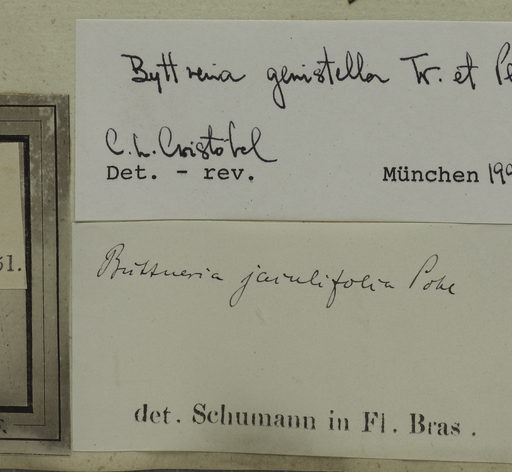 Byttneria genistella Tr. et Pl
C. L. Cristóbal
Det. - rev. München 199
51.
Büttneria jaculifolia Pohl
det. Schumann in Fl. Bras.